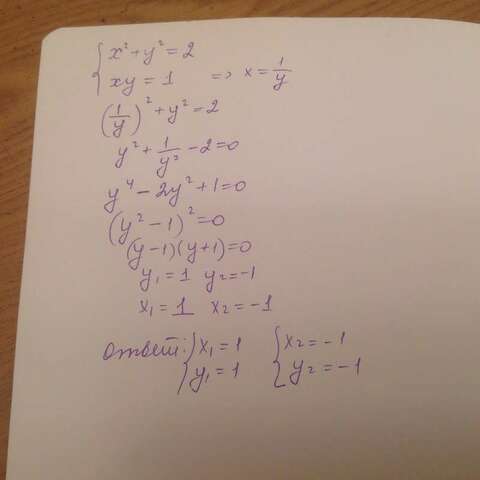 { x² + y² = 2
xy = 1 => x = 1/y
(1/y)² + y² = 2
y² + 1/y² - 2 = 0
y⁴ - 2y² + 1 = 0
(y² - 1)² = 0
(y-1)(y+1) = 0
y₁ = 1 y₂ = -1
x₁ = 1 x₂ = -1
Ответ: { x₁ = 1 { x₂ = -1
y₁ = 1 y₂ = -1